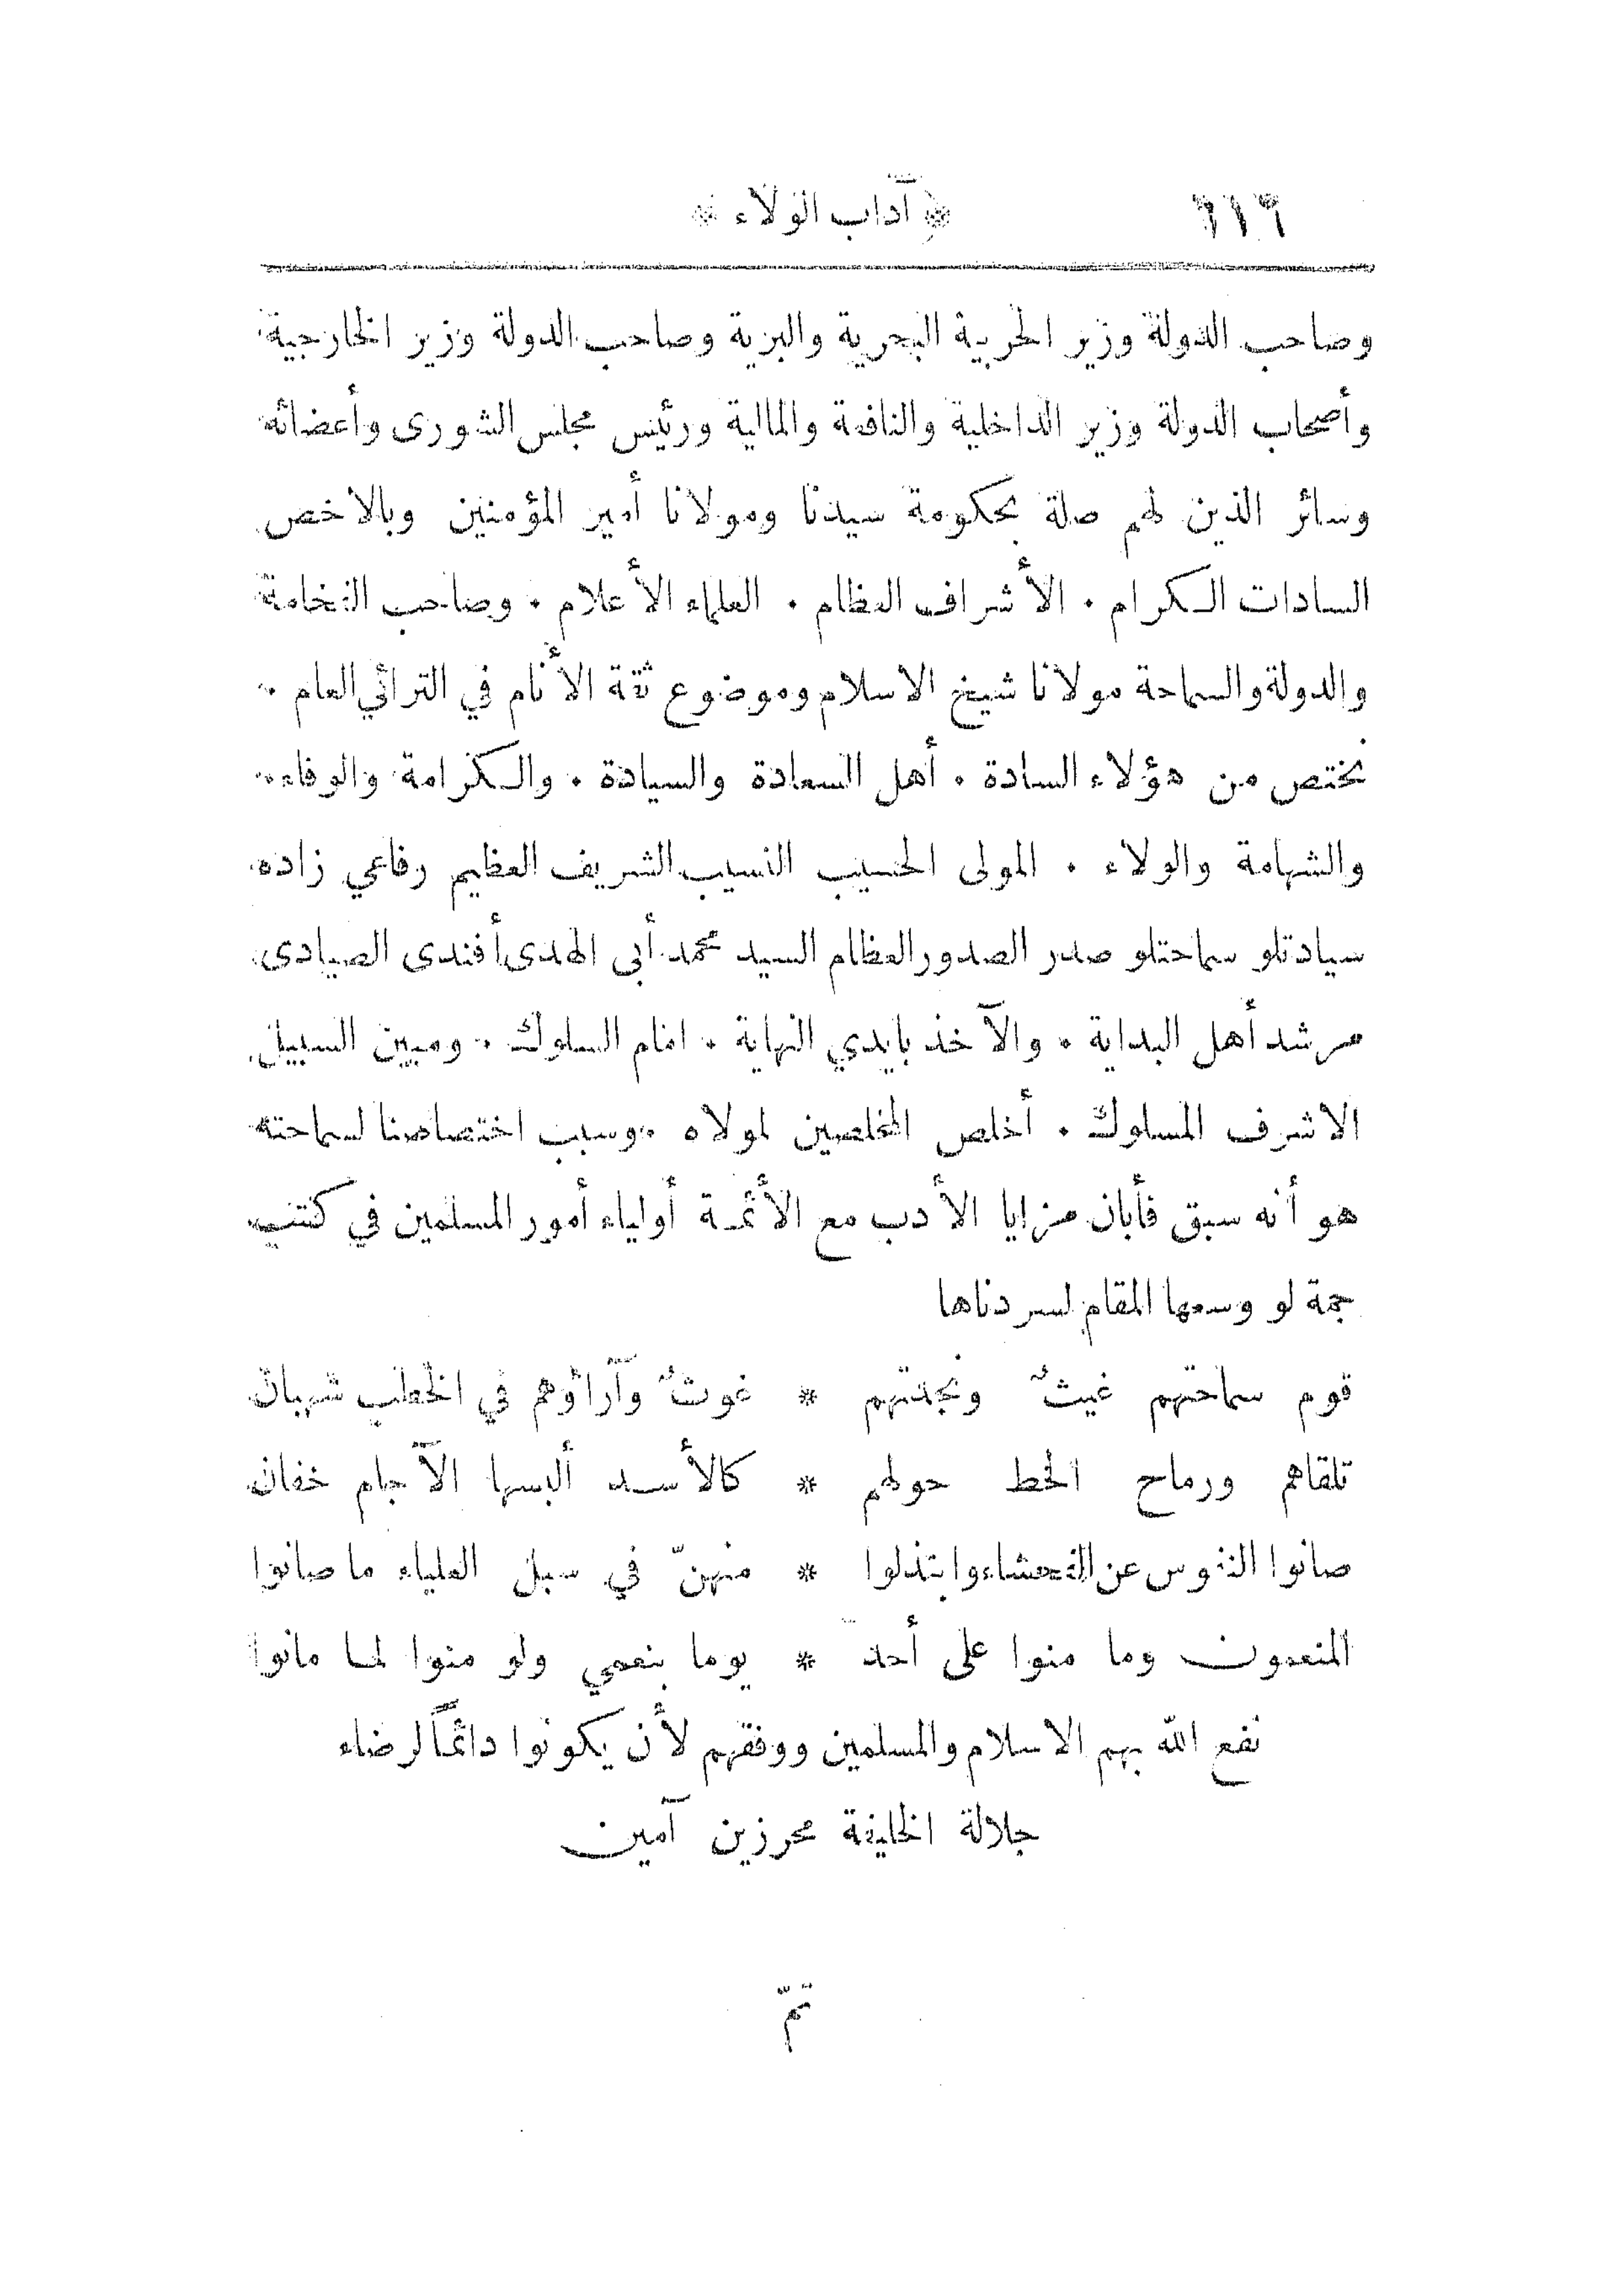 ١١٦ * آداب الولاء *
وصاحب الدولة وزير الحربية البحرية والبرية وصاحب الدولة وزير الخارجية
وأصحاب الدولة وزير الداخلية والنافعة والمالية ورئيس مجلس الشورى وأعضائه
وسائر الذين لهم صلة بحكومة سيدنا ومولانا أمير المؤمنين وبالاخص
السادات الكرام . الأشراف العظام . العلماء الأعلام . وصاحب الفخامة
والدولة والسماحة مولانا شيخ الاسلام وموضوع ثقة الأنام في الترائي العام .
نختص من هؤلاء السادة . أهل السعادة والسيادة . والكرامة والوفاء .
والشهامة والولاء . المولى الحسيب النسيب الشريف العظيم رفاعي زاده
سيادتلو سماحتلو صدر الصدور العظام السيد محمد أبى الهدى أفندى الصيادى
مرشد أهل البداية . والآخذ بايدي النهاية . امام السلوك . ومبين السبيل
الاشرف المسلوك . أخلص المخلصين لمولاه . وسبب اختصاصنا لسماحته
هو أنه سبق فأبان مزايا الأدب مع الأئمة أولياء أمور المسلمين في كتب
جمة لو وسعها المقام لسردناها
قوم سماحتهم غيثٌ ونجدتهم * غوثٌ وآراؤهم في الخطب شهبان
تلقاهم ورماح الخط حولهم * كالأسد ألبسها الآجام خفان
صانوا النفوس عن الفحشاء وابتذلوا * منهنّ في سبل العلياء ما صانوا
المنعمون وما منوا على أحد * يوما بنعمى ولو منوا لما مانوا
نفع الله بهم الاسلام والمسلمين ووفقهم لأن يكونوا دائماً لرضاء
جلالة الخليفة محرزين آمين
تمّ